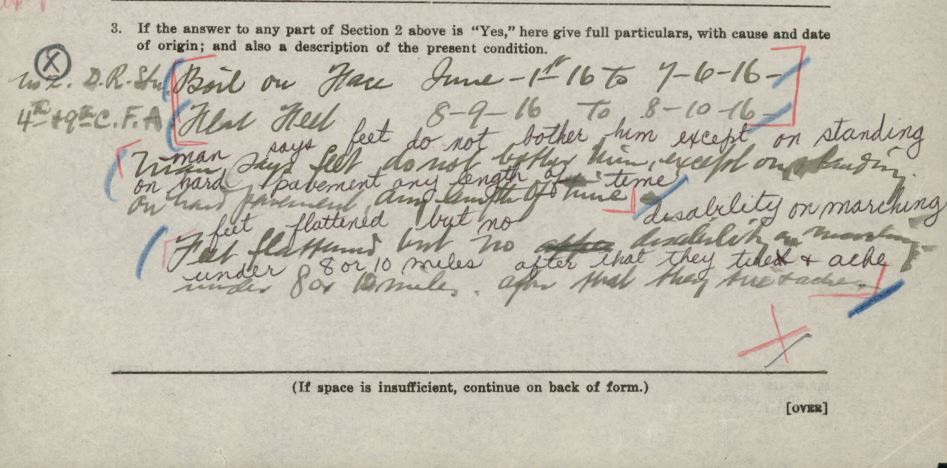 3. If the answer to any part of Section 2 above is "Yes," here give full particulars, with cause and date
of origin; and also a description of the present condition.
X
D.R. Stn. Boil on Face June - 1st 16 to 7-6-16-
4th + 9th C.F.A Flat Feet 8-9-16 To 8-10-16-
man says feet do not bother him except on standing
man says feet do not bother him, except on standing
on hard pavement any length of time
on hard pavement any length of time
feet flattened but no disability on marching
Feet flattened but no disability on marching
under 8 or 10 miles after that they tire + ache
under 8 or 10 miles. after that they tire + ache.
(If space is insufficient, continue on back of form.)
[OVER]